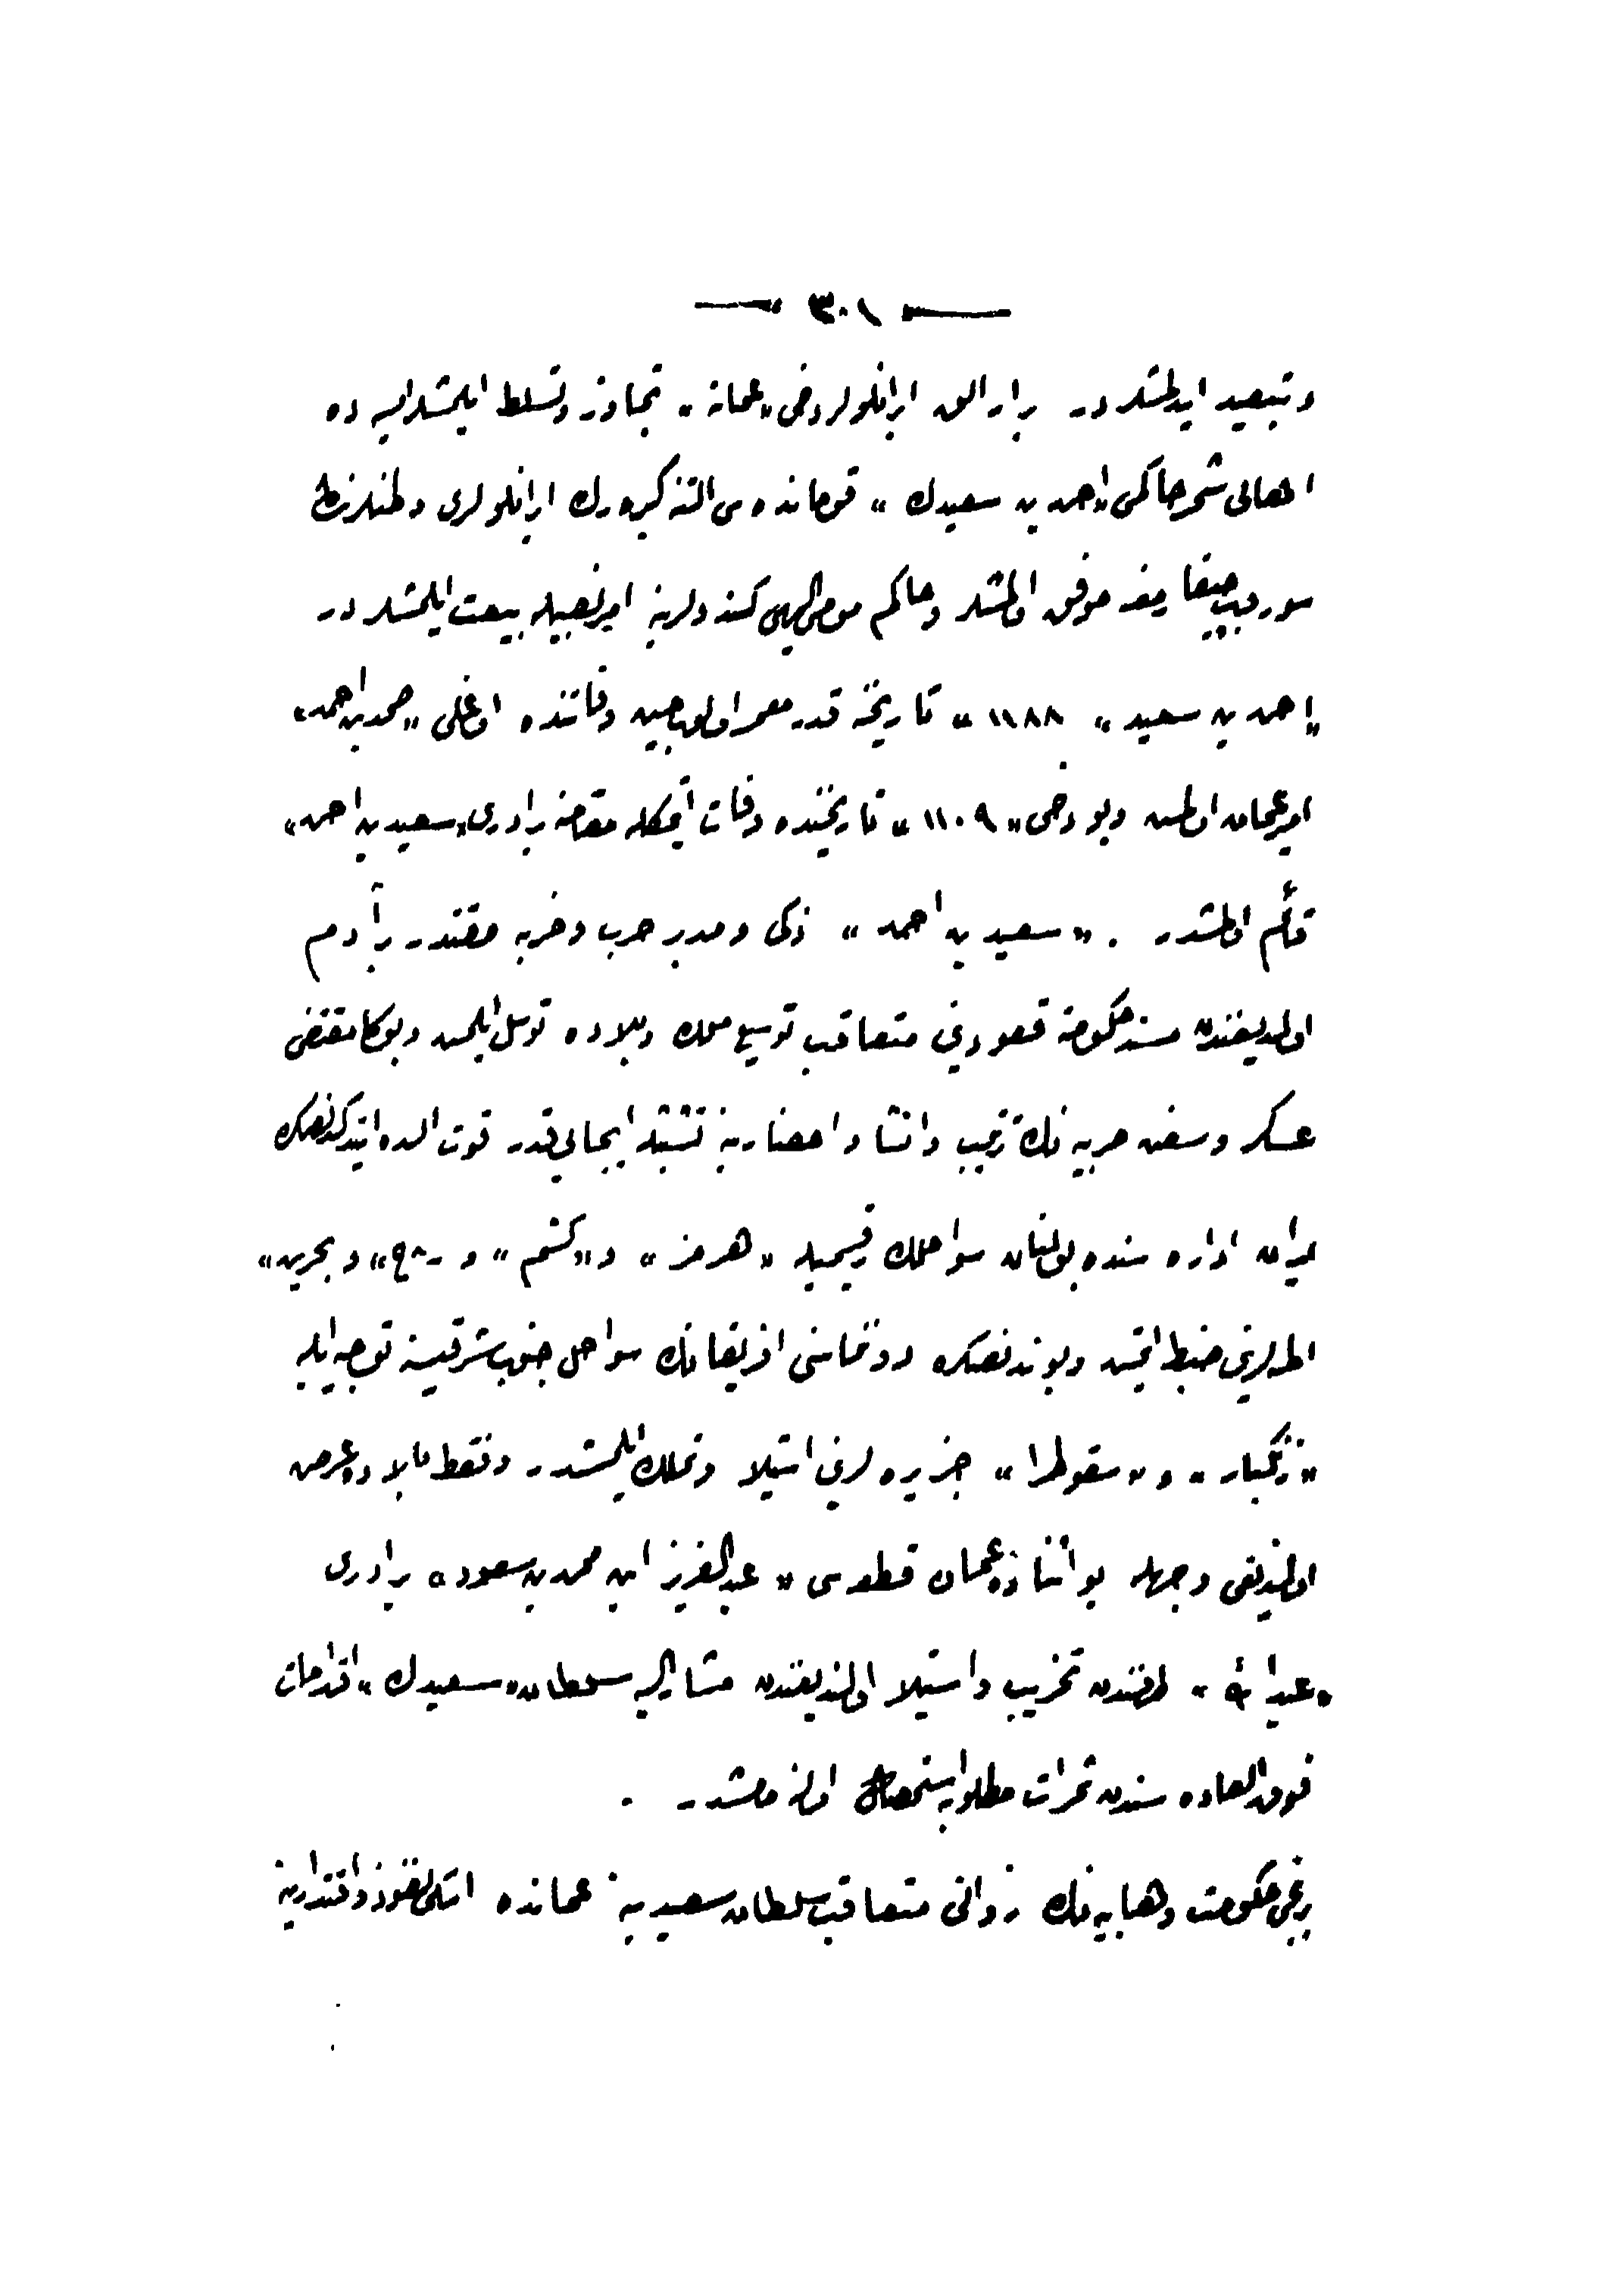 — ٣٠١ —
وتبعید ایدلمشلردر بر ارالق ایرانلولر دخی «عمانه» تجاوز وتسلط ایلمشلر ایسه ده
اهالی شحر حاکمی «احمد بن سعیدك» قومانده سی التنه کیره رك ایرانلولری وطنلرندن
سوروب چیقارمغه موفق اولمشلر وحاکم مومی الیهی کندولرینه امیر نصبیله بیعت ایلمشلردر
«احمد بن سعید» «١١٨٨» تاریخنه قدر معمر اولوب حین وفاتنده اوغلی «حمد بن احمد»
امیر عمان اولمش وبو دخی «١١٠٩» تاریخنده وفات ایتمکله مقامنه برادری «سعید بن احمد»
قائم اولمشدر . «سعید بن احمد» ذکی ومدبر حرب وضربه مقتدر بر آدم
اولدیغندن مسند حکومته قعودینی متعاقب توسیع ملك وبلاده توسل ایلمش وبوکا مقتضی
عسکر وسفن حربیه نك ترتیب وانشا واحضارینه تشبثله ایجابی قدر قوت الده ایتدکدنصکره
ایران اداره سنده بولنان سواحلك قسمیله «هرمز» و «کشم» و «بحرین»
اطه لرینی ضبط ایتمش وبوندنصکره دوننماسنی افریقانك سواحل جنوب شرقیسنه توجیه ایله
«زنکبار» و «سقوطرا» جزیره لرینی استیلا وتملك ایلمشدر وفقط بالاده عرض
اولندیغی وجهله بو اثناده عمان قطعه سی «عبدالعزیز ابن محمد بن سعود» برادری
«عبدالله» طرفندن تخریب واستیلا اولندیغندن مشار الیه سلطان «سعیدك» اقدامات
فوق العاده سندن ثمرات مطلوبه استحصال اولنه مامشدر .
برنجی حکومت وهابیه نك زوالنی متعاقب سلطان سعید ینه عمانده اسکی نفوذ واقتدارینه